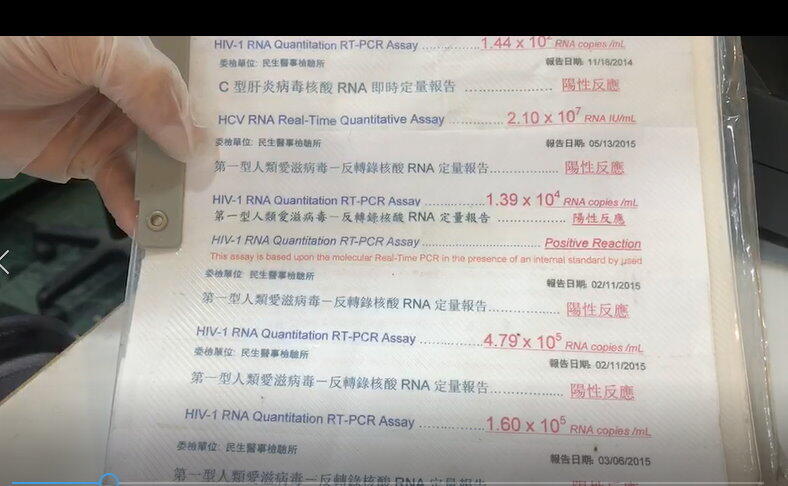 HIV-1 RNA Quantitation RT-PCR Assay ............... 1.44 x 10² RNA copies/mL
委檢單位: 民生醫事檢驗所 報告日期: 11/18/2014
C 型肝炎病毒核酸 RNA 即時定量報告 .................... 陽性反應
HCV RNA Real-Time Quantitative Assay .............. 2.10 x 10⁷ RNA IU/mL
委檢單位: 民生醫事檢驗所 報告日期: 05/13/2015
第一型人類愛滋病毒－反轉錄核酸 RNA 定量報告................. 陽性反應
HIV-1 RNA Quantitation RT-PCR Assay ............... 1.39 x 10⁴ RNA copies/mL
第一型人類愛滋病毒－反轉錄核酸 RNA 定量報告 ................. 陽性反應
HIV-1 RNA Quantitation RT-PCR Assay .............................. Positive Reaction
This assay is based upon the molecular Real-Time PCR in the presence of an internal standard by µsed
委檢單位: 民生醫事檢驗所 報告日期: 02/11/2015
第一型人類愛滋病毒－反轉錄核酸 RNA 定量報告................. 陽性反應
HIV-1 RNA Quantitation RT-PCR Assay ............... 4.79 x 10⁵ RNA copies /mL
委檢單位: 民生醫事檢驗所 報告日期: 02/11/2015
第一型人類愛滋病毒－反轉錄核酸 RNA 定量報告................. 陽性反應
HIV-1 RNA Quantitation RT-PCR Assay ............... 1.60 x 10⁵ RNA copies /mL
委檢單位: 民生醫事檢驗所 報告日期: 03/06/2015
第一型人類愛滋病毒－反轉錄核酸 RNA 定量報告 陽性反應